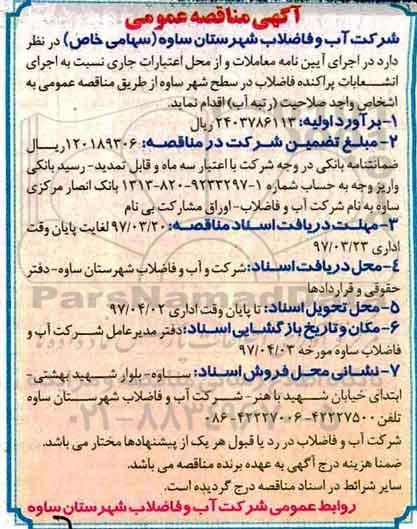 آگهی مناقصه عمومی
شرکت آب و فاضلاب شهرستان ساوه (سهامی خاص) در نظر
دارد در اجرای آیین نامه معاملات و از محل اعتبارات جاری نسبت به اجرای
انشعابات پراکنده فاضلاب در سطح شهر ساوه از طریق مناقصه عمومی به
اشخاص واجد صلاحیت (رتبه آب) اقدام نماید.
۱- برآورد اولیه: ۲۴۰۳۷۸۶۱۱۳ ریال
۲- مبلغ تضمین شرکت در مناقصه: ۱۲۰۱۸۹۳۰۶ ریال
ضمانتنامه بانکی در وجه شرکت با اعتبار سه ماه و قابل تمدید- رسید بانکی
واریز وجه به حساب شماره ۱-۹۲۳۳۲۹۷-۸۲۰-۱۳۱۳ بانک انصار مرکزی
ساوه به نام شرکت آب و فاضلاب- اوراق مشارکت بی نام
۳- مهلت دریافت اسناد مناقصه: ۹۷/۰۳/۲۰ لغایت پایان وقت
اداری ۹۷/۰۳/۲۳
۴- محل دریافت اسناد: شرکت و آب و فاضلاب شهرستان ساوه- دفتر
حقوقی و قراردادها
۵- محل تحویل اسناد: تا پایان وقت اداری ۹۷/۰۴/۰۲
۶- مکان و تاریخ بازگشایی اسناد: دفتر مدیرعامل شرکت آب و
فاضلاب ساوه مورخه ۹۷/۰۴/۰۳
۷- نشانی محل فروش اسناد: ساوه- بلوار شهید بهشتی-
ابتدای خیابان شهید با هنر- شرکت آب و فاضلاب شهرستان ساوه
تلفن ۴۲۲۲۷۵۰۰-۴۲۲۲۷۰۰۶-۰۸۶
شرکت آب و فاضلاب در رد یا قبول هر یک از پیشنهادها مختار می باشد.
ضمنا هزینه درج آگهی به عهده برنده مناقصه می باشد.
سایر شرائط در اسناد مناقصه درج گردیده است.
روابط عمومی شرکت آب و فاضلاب شهرستان ساوه
ParsNamadData
۰۲۱-۸۸۳۴۹۶۷۰-۵